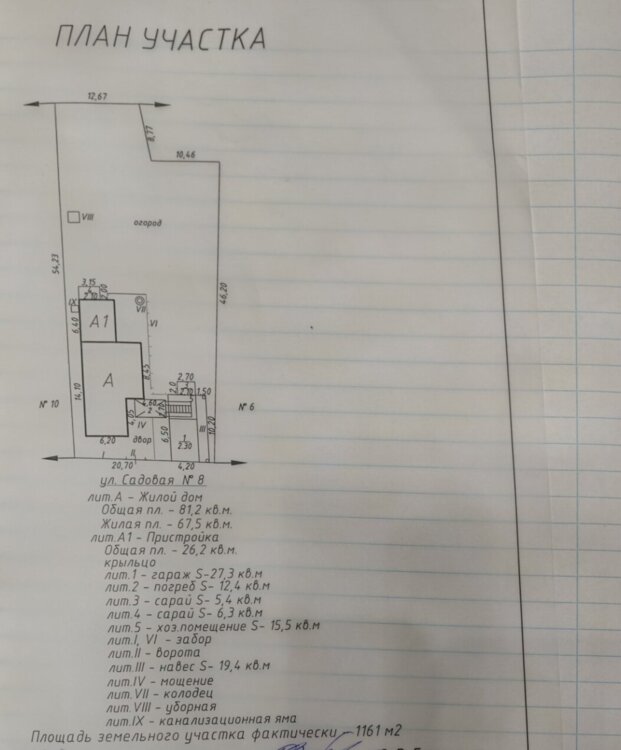 ПЛАН УЧАСТКА
12,67
8,77
10,46
VIII
огород
54,23
46,20
3,15
4
2,10
2,00
IX
VII
VI
6,40
А1
А
8,45
14,10
2,70
3
2,0
2,10
1,50
№ 10
№ 6
4,60
2
4,05
IV
6,50
III
10,20
6,20
двор
1
2.30
I
II
20,70
4,20
ул. Садовая № 8
лит.А - Жилой дом
Общая пл. - 81,2 кв.м.
Жилая пл. - 67,5 кв.м.
лит.А1 - Пристройка
Общая пл. - 26,2 кв.м.
крыльцо
лит.1 - гараж S-27,3 кв.м
лит.2 - погреб S- 12,4 кв.м
лит.3 - сарай S- 5,4 кв.м
лит.4 - сарай S- 6,3 кв.м
лит.5 - хоз.помещение S- 15,5 кв.м
лит.I, VI - забор
лит.II - ворота
лит.III - навес S- 19,4 кв.м
лит.IV - мощение
лит.VII - колодец
лит.VIII - уборная
лит.IX - канализационная яма
Площадь земельного участка фактически - 1161 м2